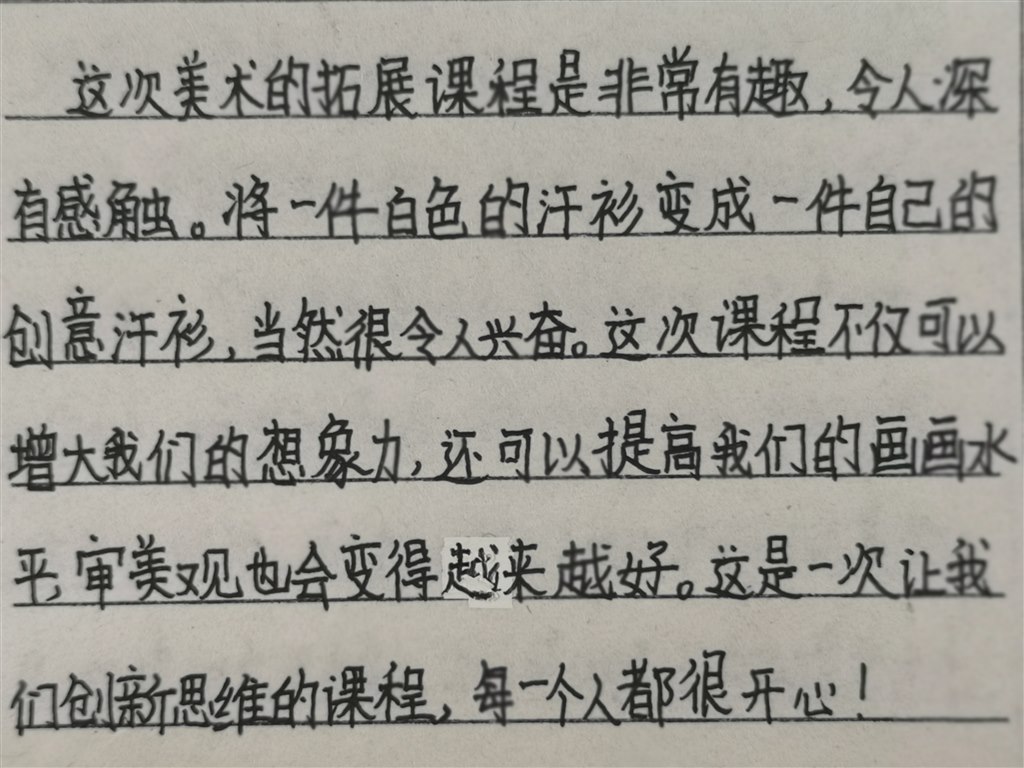 这次美术的拓展课程是非常有趣，令人深
有感触。将一件白色的汗衫变成一件自己的
创意汗衫，当然很令人兴奋。这次课程不仅可以
增大我们的想象力，还可以提高我们的画画水
平，审美观也会变得越来越好。这是一次让我
们创新思维的课程，每一个人都很开心！